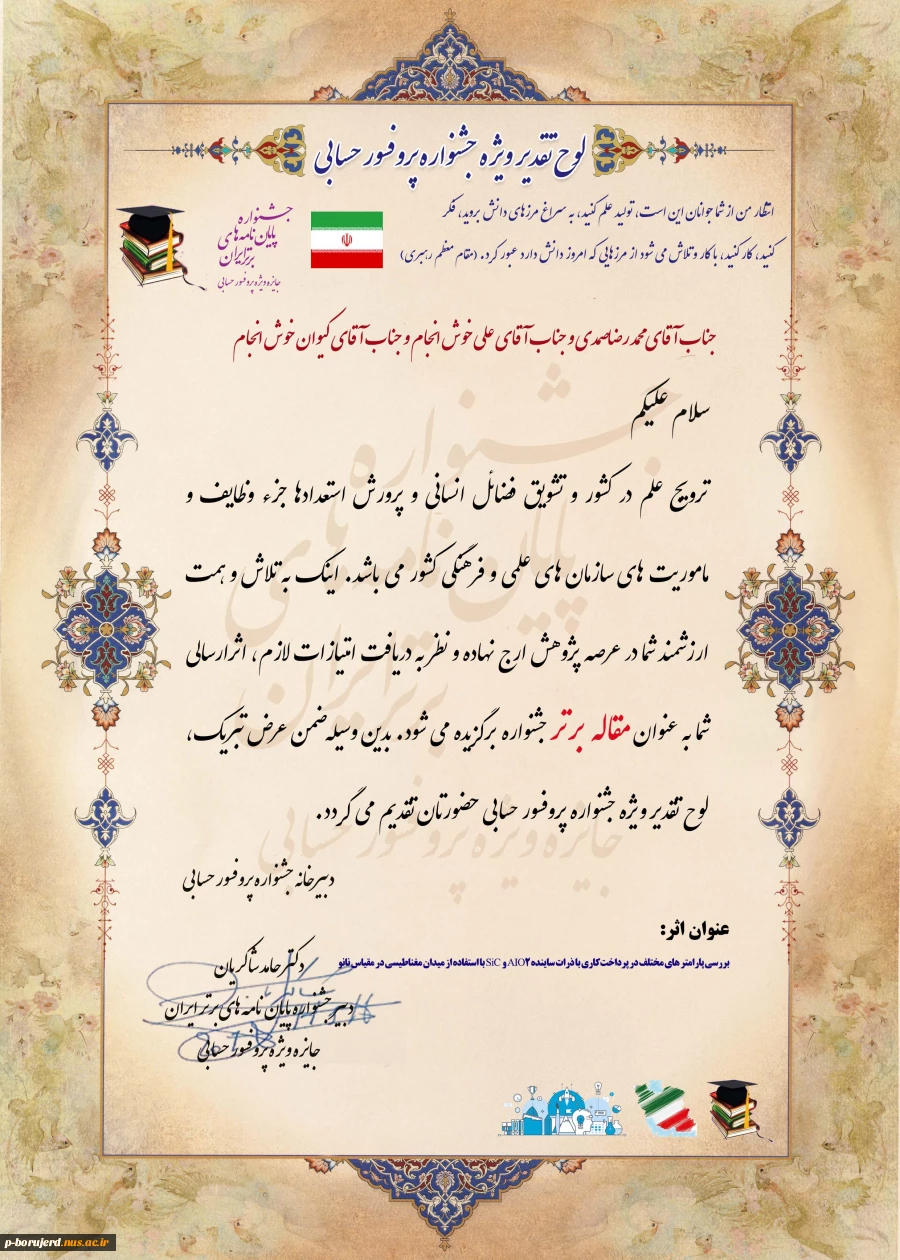 لوح تقدیر ویژه جشنواره پروفسور حسابی
انتظار من از شما جوانان این است، تولید علم کنید، به سراغ مرزهای دانش بروید، فکر
کنید، کار کنید، با کار و تلاش می شود از مرزهایی که امروز دانش دارد عبور کرد. (مقام معظم رهبری)
جشنواره
پایان نامه های
برتر ایران
جایزه ویژه پروفسور حسابی
جناب آقای محمدرضا صمدی و جناب آقای علی خوش انجام و جناب آقای کیوان خوش انجام
سلام علیکم
ترویج علم در کشور و تشویق فضائل انسانی و پرورش استعدادها جزء وظایف و
ماموریت های سازمان های علمی و فرهنگی کشور می باشد. اینک به تلاش و همت
ارزشمند شما در عرصه پژوهش ارج نهاده و نظر به دریافت امتیازات لازم، اثر ارسالی
شما به عنوان مقاله برتر جشنواره برگزیده می شود. بدین وسیله ضمن عرض تبریک،
لوح تقدیر ویژه جشنواره پروفسور حسابی حضورتان تقدیم می گردد.
جشنواره
پایان نامه های
برتر ایران
جایزه ویژه پروفسور حسابی
دبیرخانه جشنواره پروفسور حسابی
عنوان اثر:
بررسی پارامترهای مختلف در پرداخت کاری با ذرات ساینده AlO2 و SiC با استفاده از میدان مغناطیسی در مقیاس نانو
دکتر حامد شاکریان
دبیر جشنواره پایان نامه های برتر ایران
جایزه ویژه پروفسور حسابی
p-borujerd.nus.ac.ir